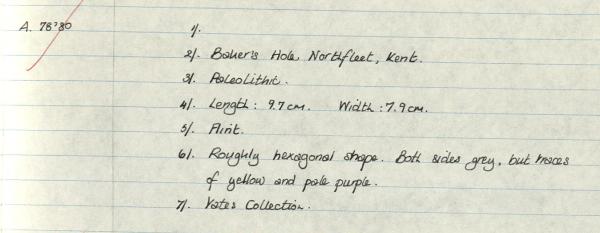 A. 78'80
1/.
2/. Baker's Hole, Northfleet, Kent.
3/. Paleolithic.
4/. Length : 9.7cm. Width : 7.9cm.
5/. Flint.
6/. Roughly hexagonal shape. Both sides grey, but traces
of yellow and pale purple.
7/. Yates Collection.